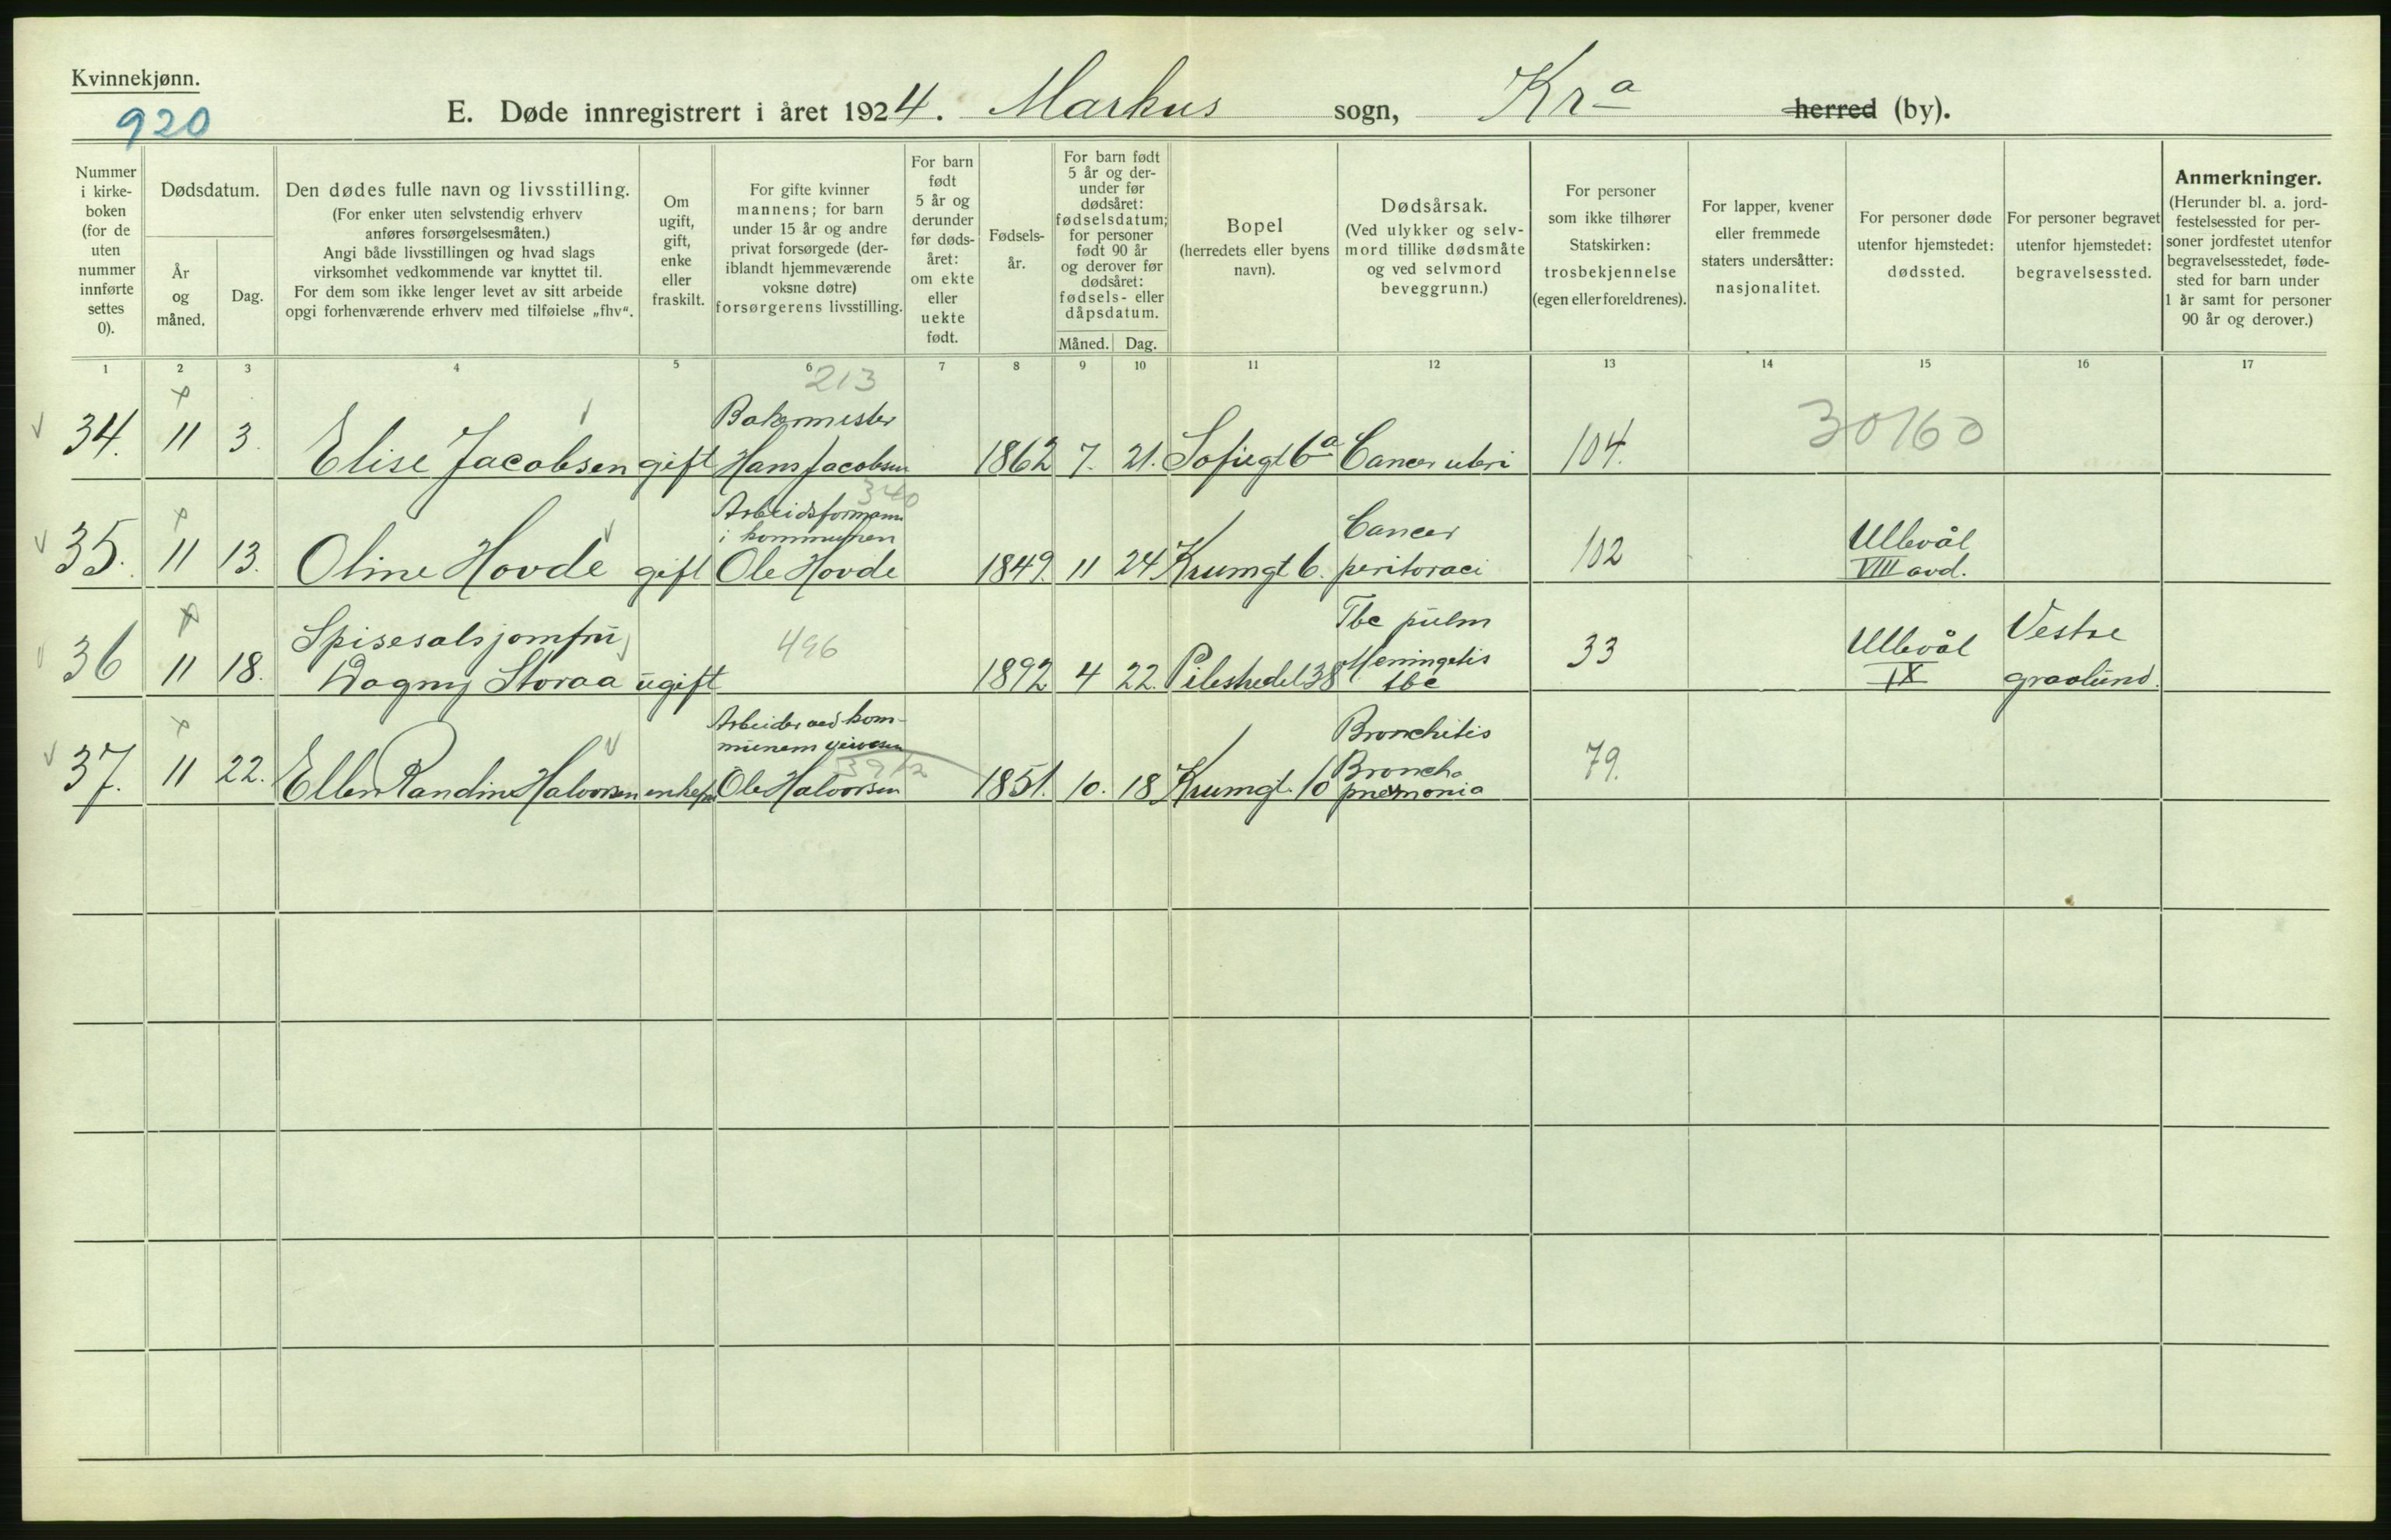 Kvinnekjønn.
920
E. Døde innregistrert i året 1924. Markus sogn, Kra herred (by).
Nummer i kirke-boken (for de uten nummer innførte settes 0).
Dødsdatum.
År og måned.
Dag.
Den dødes fulle navn og livsstilling.
(For enker uten selvstendig erhverv
anføres forsørgelsesmåten.)
Angi både livsstillingen og hvad slags
virksomhet vedkommende var knyttet til.
For dem som ikke lenger levet av sitt arbeide
opgi forhenværende erhverv med tilføielse „fhv“.
Om
ugift,
gift,
enke
eller
fraskilt.
For gifte kvinner
mannens; for barn
under 15 år og andre
privat forsørgede (der-
iblandt hjemmeværende
voksne døtre)
forsørgerens livsstilling.
For barn
født
5 år og
derunder
før døds-
året:
om ekte
eller
uekte
født.
Fødsels-
år.
For barn født
5 år og der-
under før
dødsåret:
fødselsdatum;
for personer
født 90 år
og derover før
dødsåret:
fødsels- eller
dåpsdatum.
Måned. Dag.
Bopel
(herredets eller byens
navn).
Dødsårsak.
(Ved ulykker og selv-
mord tillike dødsmåte
og ved selvmord
beveggrunn.)
For personer
som ikke tilhører
Statskirken:
trosbekjennelse
(egen eller foreldrenes).
For lapper, kvener
eller fremmede
staters undersåtter:
nasjonalitet.
For personer døde
utenfor hjemstedet:
dødssted.
For personer begravet
utenfor hjemstedet:
begravelsessted.
Anmerkninger.
(Herunder bl. a. jord-
festelsessted for per-
soner jordfestet utenfor
begravelsesstedet, føde-
sted for barn under
1 år samt for personer
90 år og derover.)
1 2 3 4 5 6 7 8 9 10 11 12 13 14 15 16 17
213
Bakermester
34. 11 3. Elise Jacobsen gift Hans Jacobsen 1862 7. 21. Sofiegt 6a Cancer uteri 104. 30160
340
Arbeidsformann
i kommunen
Cancer
Ullevål
35. 11 13. Oline Hovde gift Ole Hovde 1849. 11 24 Krumgt 6. 102 VIII avd.
Spisesalsjomfru
496
Tbc pulm
Ullevål
Vestre
36 11 18. Dagny Storaa ugift 1892 4 22. Pilestredet 38 Meningitis
tbc
33 IX
Arbeider ved kom-
Bronchitis
37. 11 22. Ellen Randine Halvorsen Ole Halvorsen 1851. 10. 18 Krumgt. 10 Broncho
pnemonia
79.